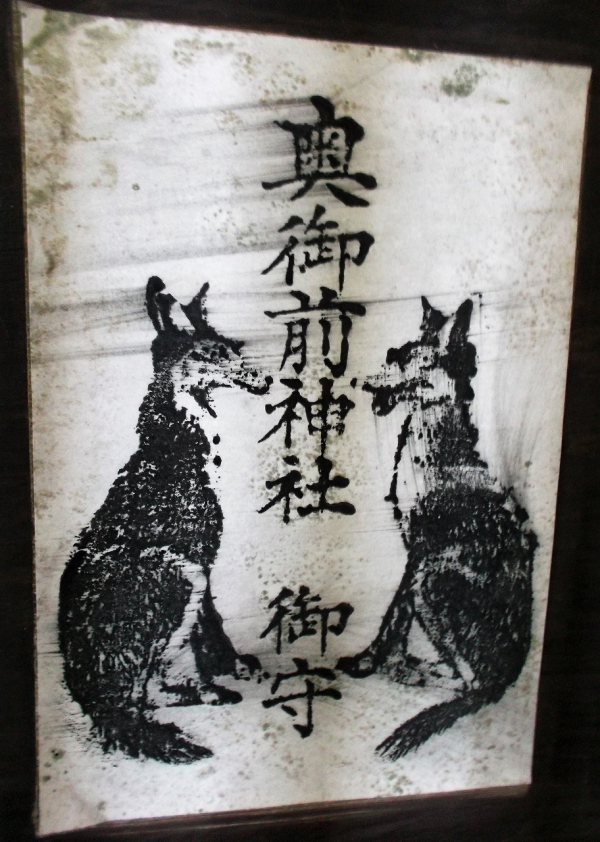 奥御前神社　御守